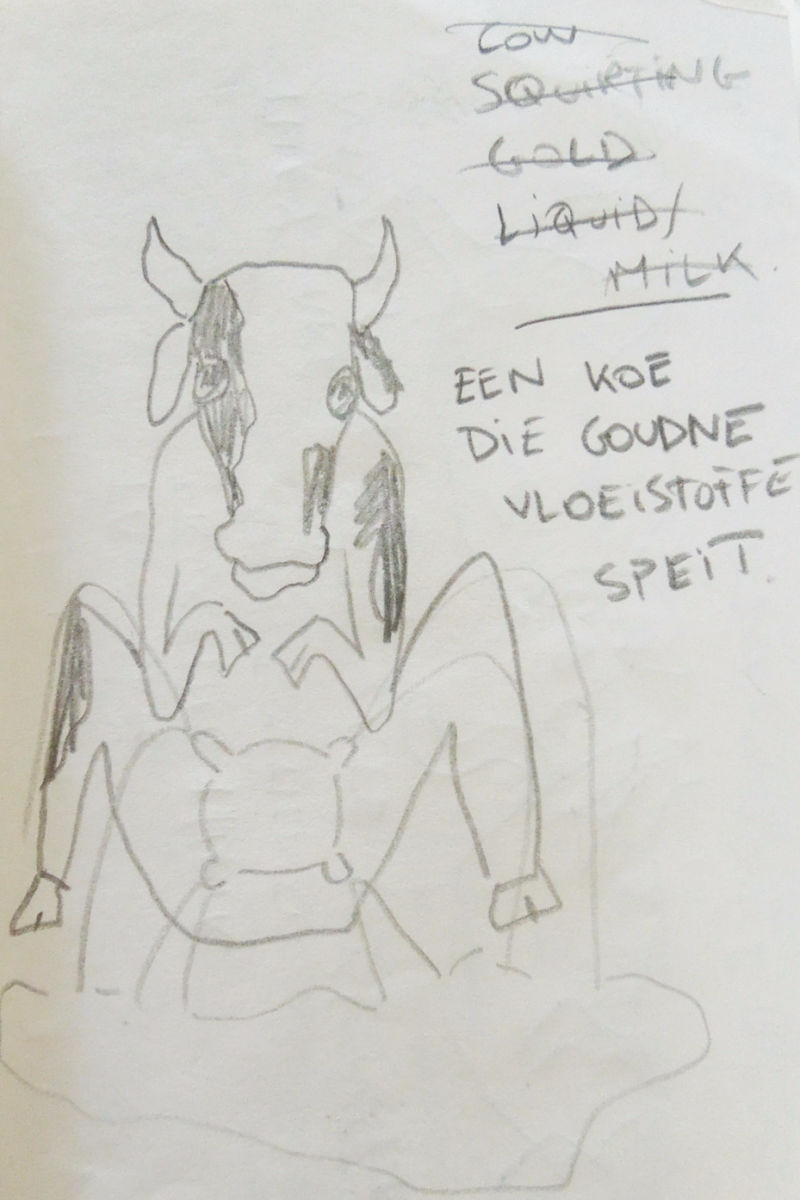 COW
SQUIRTING
GOLD
LIQUID/
MILK.
EEN KOE
DIE GOUDNE
VLOEISTOFFE
SPEIT.